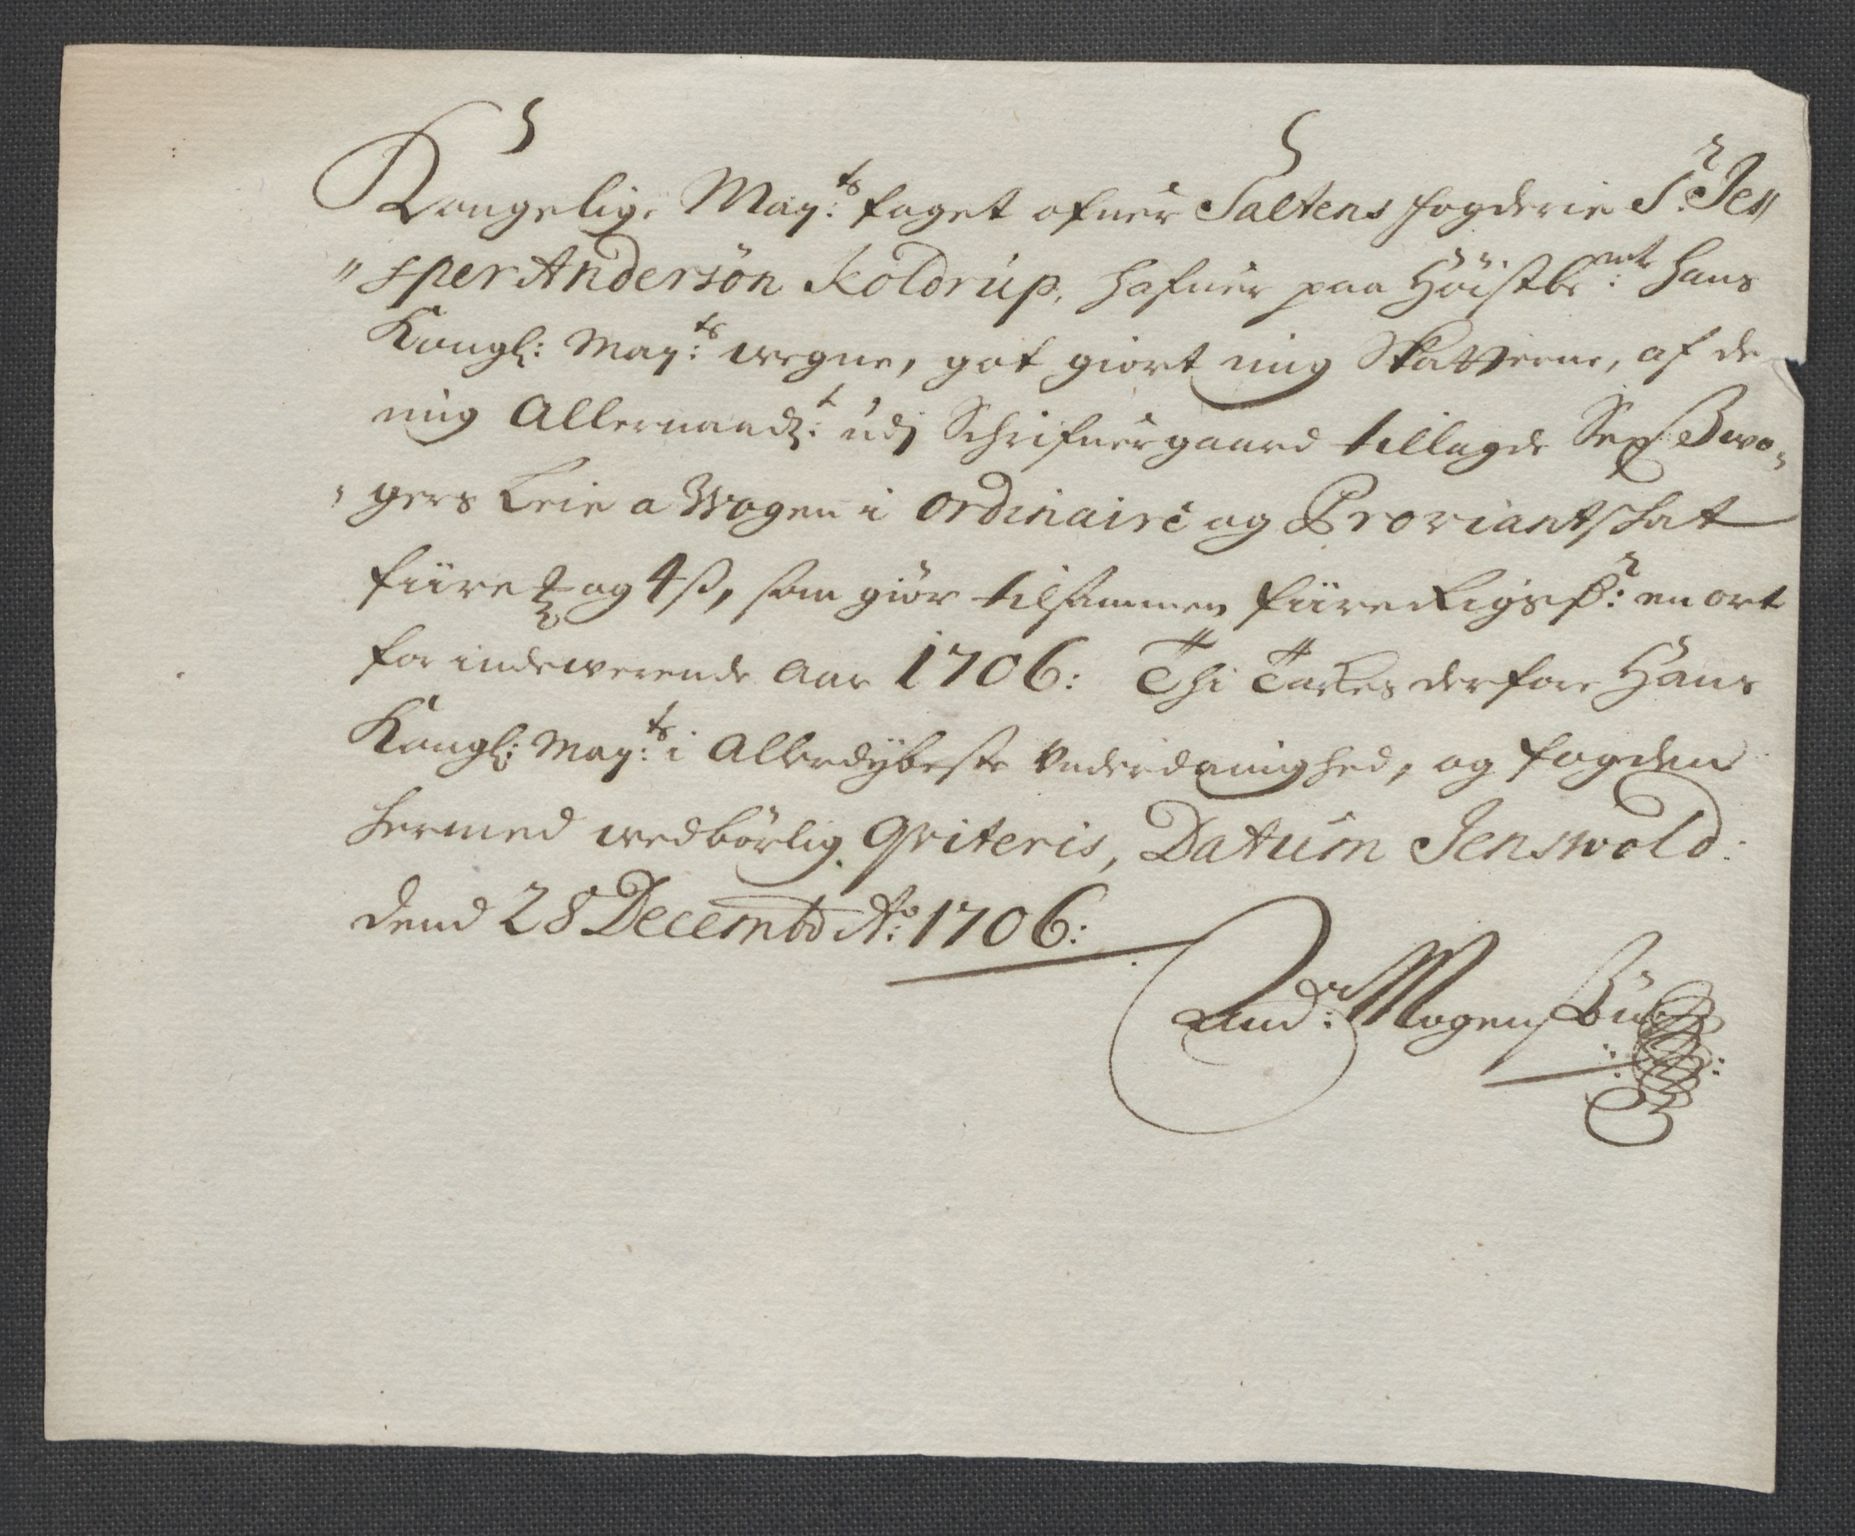 Kongelige May:ts foget ofuer Saltens fogderie Sr: Jes//
//sper Andersøn Koldrup, hafuer paa Høistbe:mte Hans
Kongl: May:ts wegne, got giort mig Skatterne, af de
mig Allernaad:t udj Schrifuergaard tillagde Sex
gers Leie a Wogen i ordinaire og Proviantschat
fiire og 4 ß, som giør tilsammen fiire Rigsdr: en ort
for indewerende Aar 1706: Thi Tackes derfore Hans
Kongl: May:ts i Allerdybeste Underdanighed, og fogden
hermed wedbørlig Qviteris, Datum Jenswold:
dend 28 Decembr Ao: 1706:
Mogens